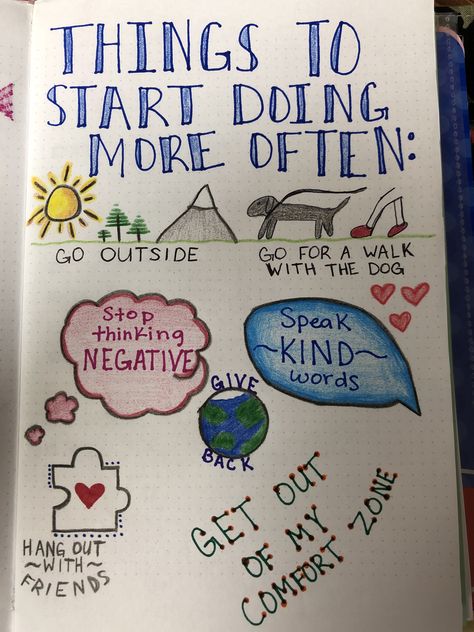 THINGS TO
START DOING
MORE OFTEN:
GO OUTSIDE
GO FOR A WALK
WITH THE DOG
Stop
thinking
NEGATIVE
Speak
~KIND~
words
GIVE
BACK
HANG OUT
~WITH~
FRIENDS
GET OUT
OF MY
COMFORT ZONE